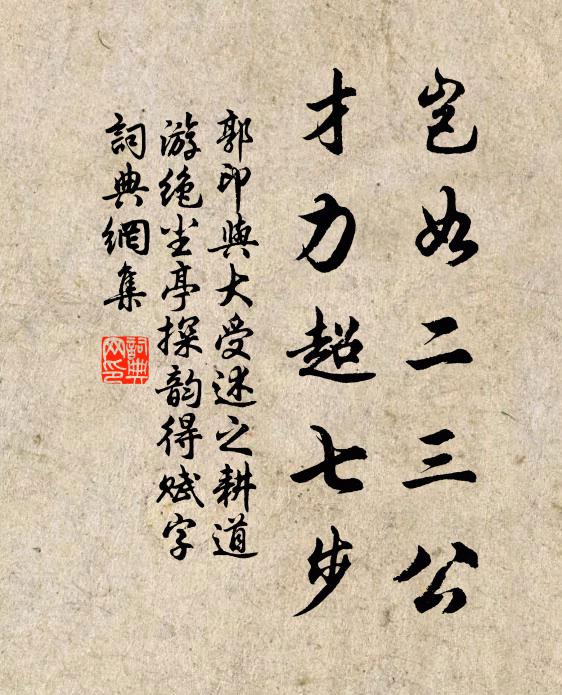 岂如二三公
才力超七步
郭印與大受述之耕道
游绝尘亭探韵得赋字
詞典網集
詞典网印